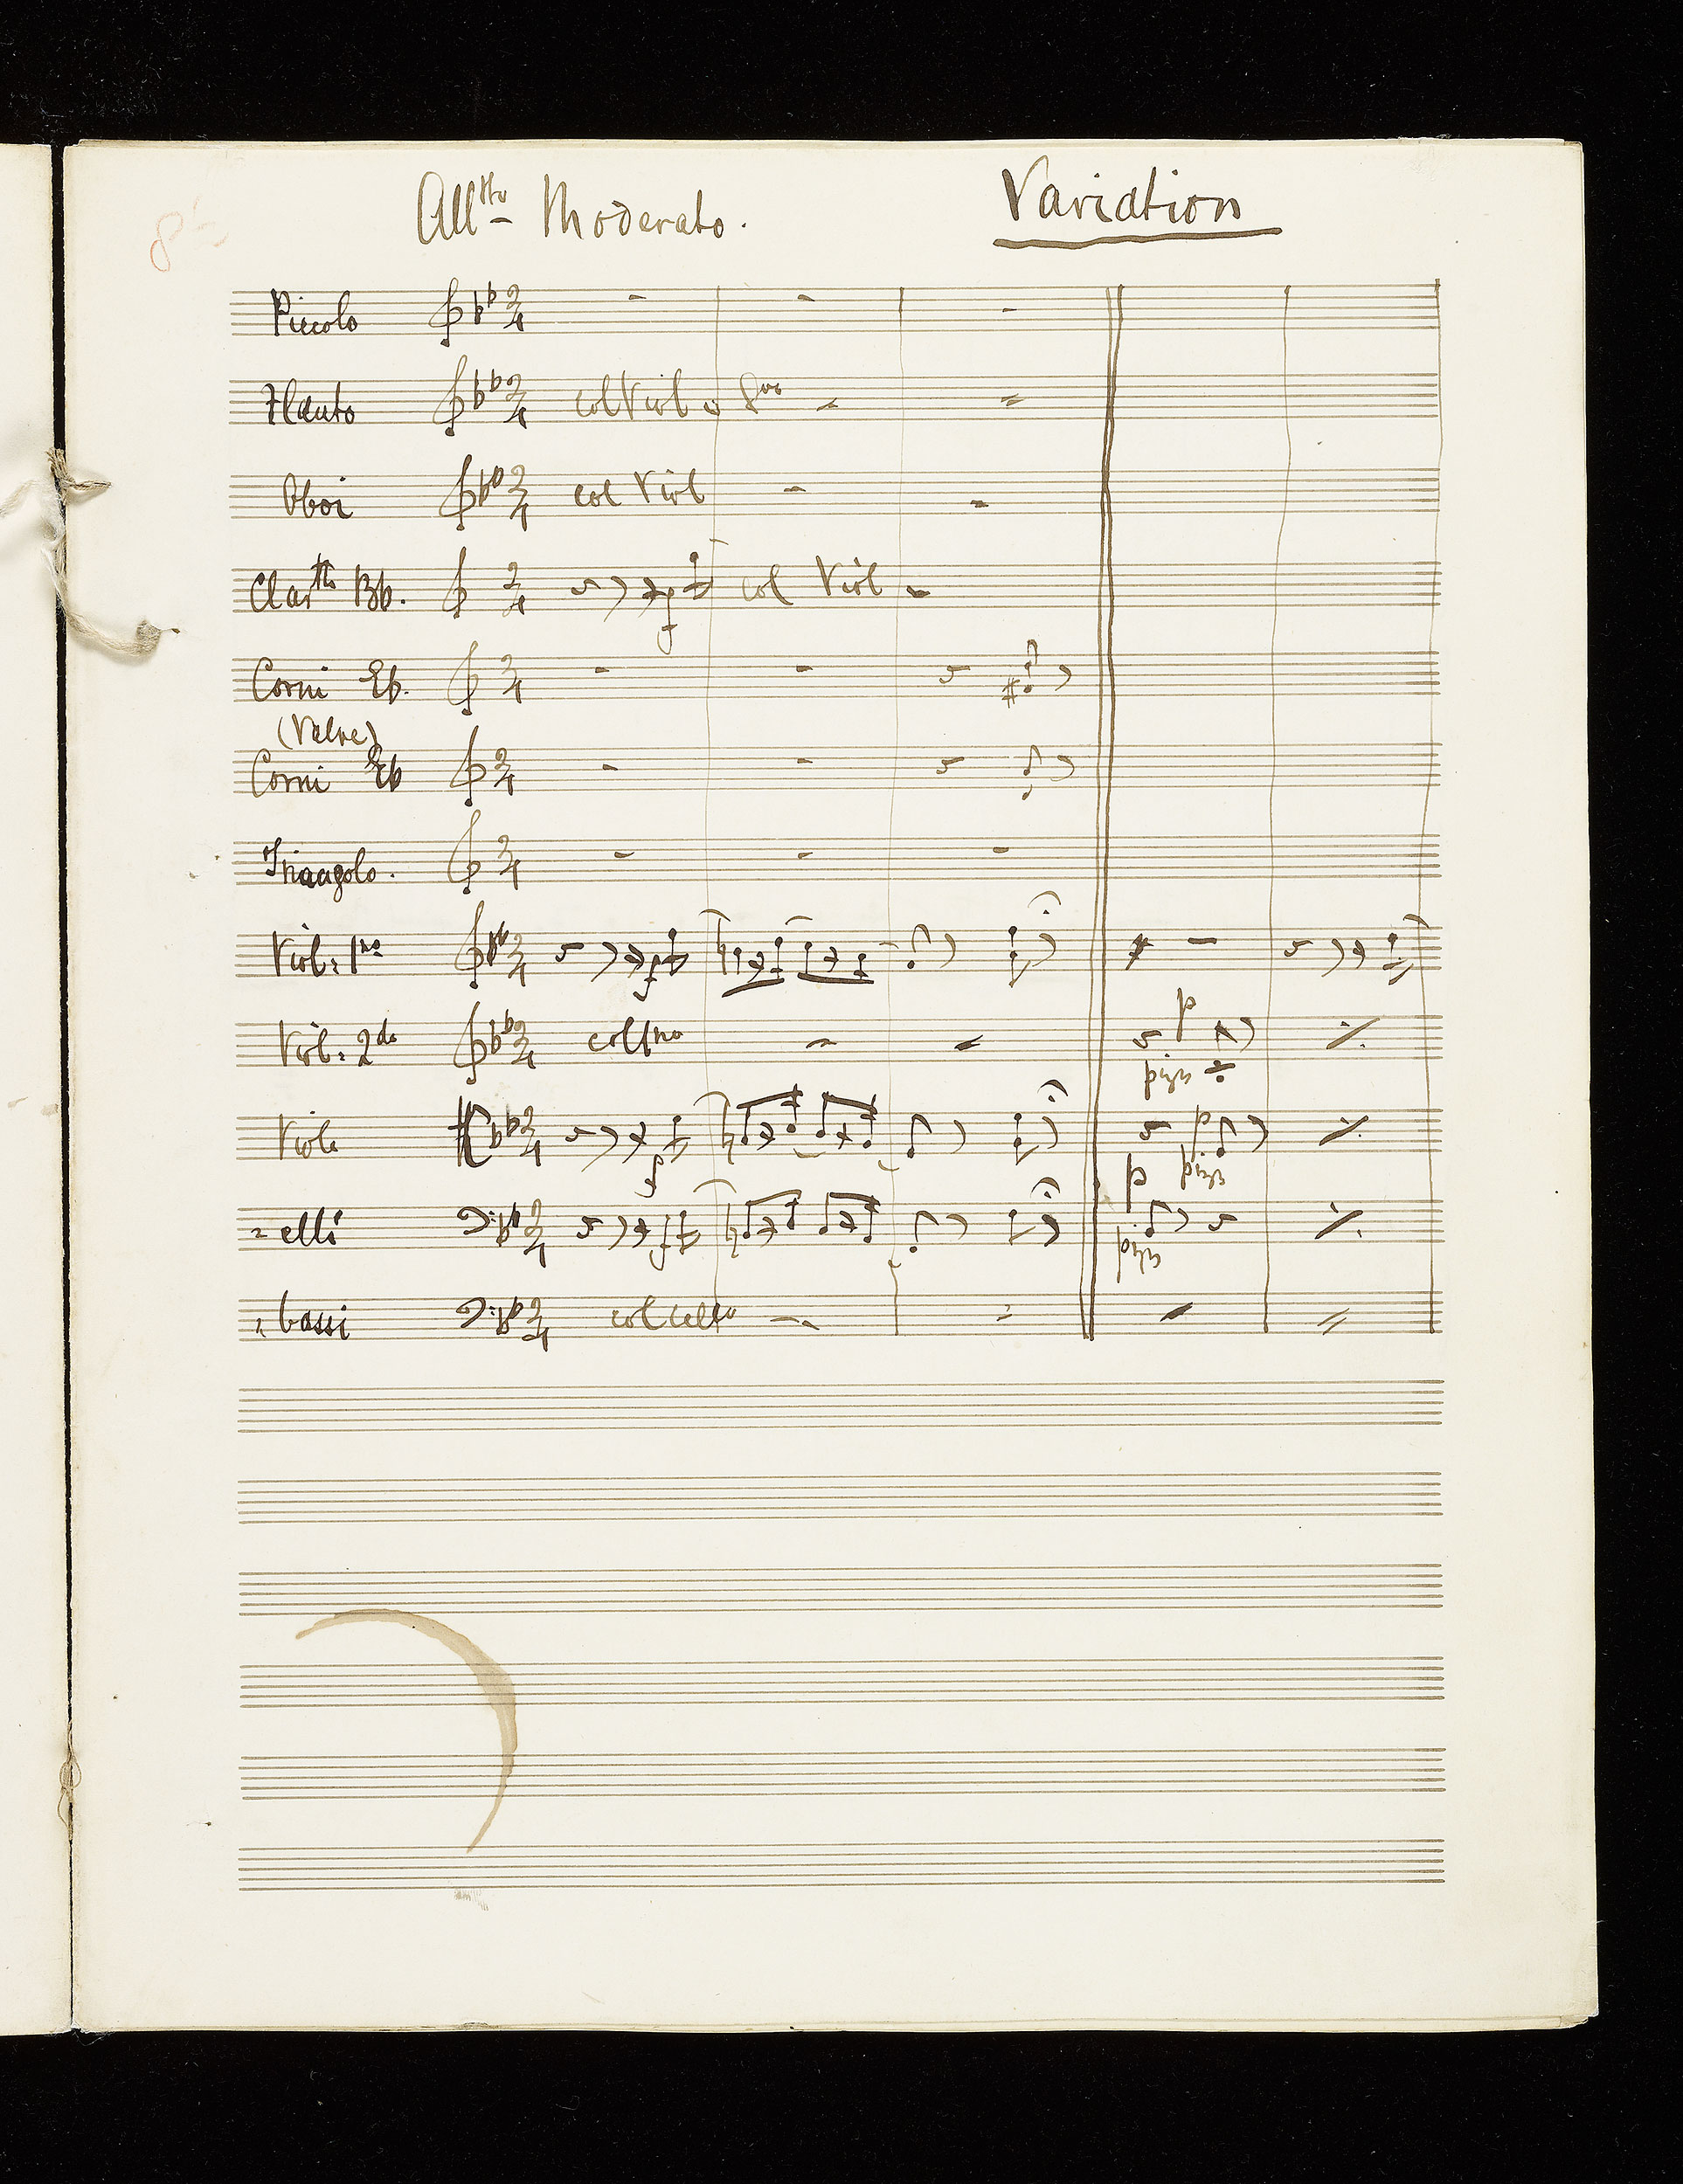 All<sup>tto</sup> Moderato.
Variation
Piccolo
Flauto col Viol 8va
Oboi col Viol
Clartti Bb. f col Viol
Corni Eb.
(Valve)
Corni Eb
Triangolo.
Viol: 1mo f
Viol: 2do col 1mo p
pizz
Viole f p pizz
" elli f p
pizz
" bassi col cello